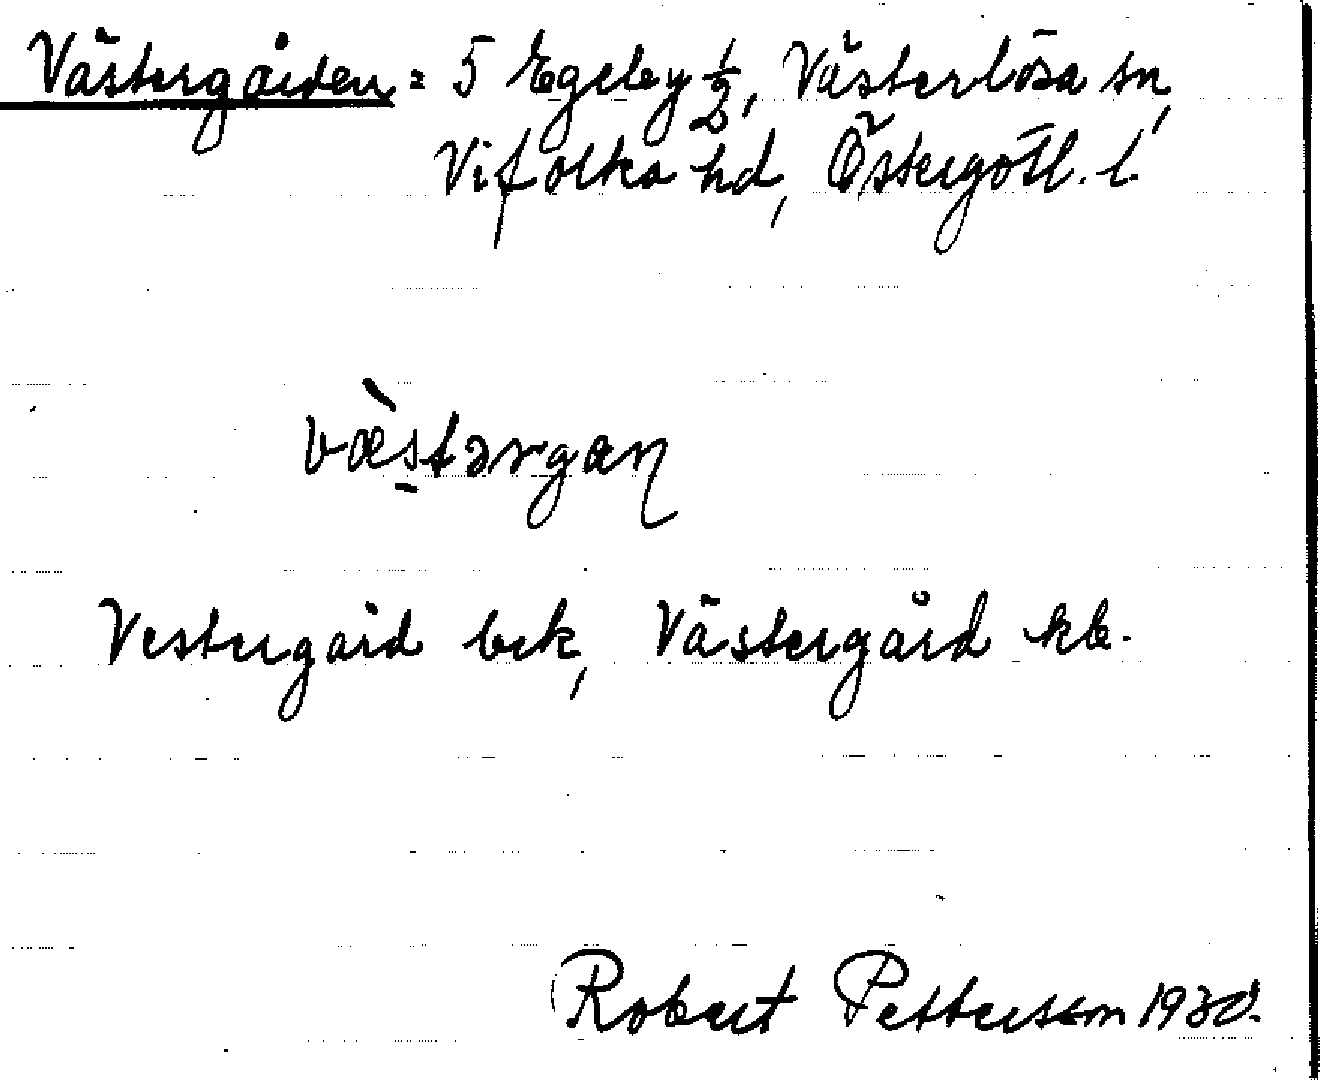 Västergården = 5 Egeby 1/2, Västerlösa sn,
Vifolka hd, Östergötl. l.
væ̀stərgan
Vestergård bek, Västergård kb.
Robert Pettersson 1930.